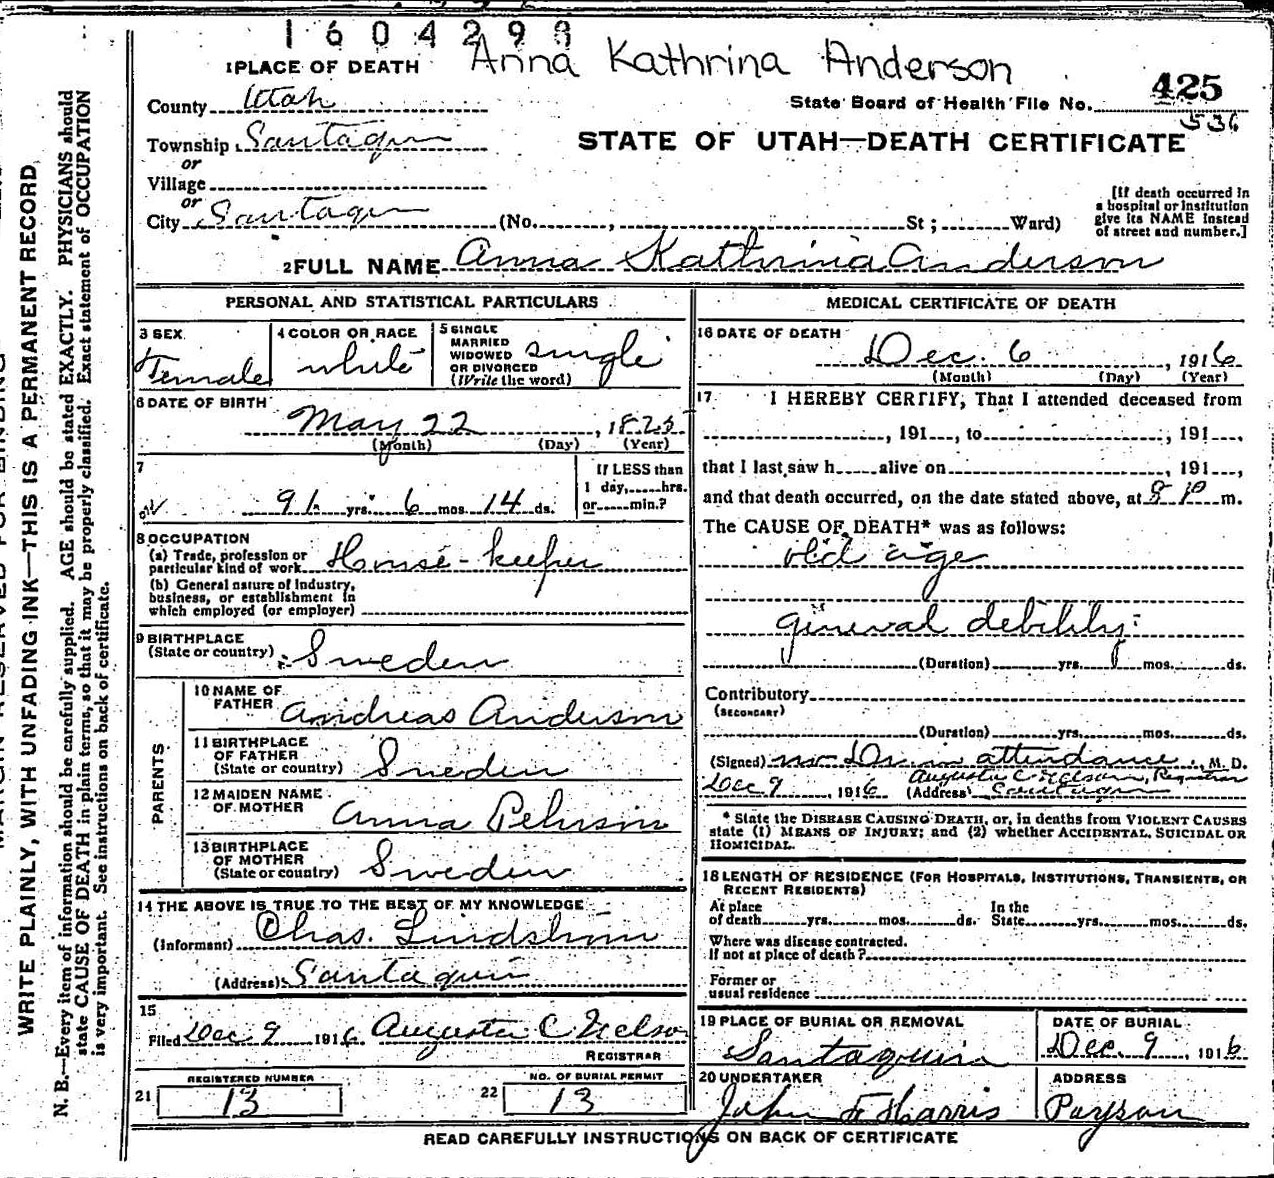 1604293
Anna Kathrina Anderson
1 PLACE OF DEATH
County Utah
State Board of Health File No. 425
536
Township Santaquin
STATE OF UTAH—DEATH CERTIFICATE
or
Village
or
City Santaquin (No. , St ; Ward)
[If death occurred in
a hospital or institution
give its NAME instead
of street and number.]
2 FULL NAME Anna Kathrina Anderson
PERSONAL AND STATISTICAL PARTICULARS
3 SEX
Female
4 COLOR OR RACE
white
5 SINGLE
MARRIED
WIDOWED
OR DIVORCED
(Write the word)
single
6 DATE OF BIRTH
May 22, 1825
(Month) (Day) (Year)
7
91 yrs. 6 mos. 14 ds.
If LESS than
1 day, hrs.
or min.?
8 OCCUPATION
(a) Trade, profession or
particular kind of work House-keeper
(b) General nature of industry,
business, or establishment in
which employed (or employer)
9 BIRTHPLACE
(State or country) Sweden
PARENTS
10 NAME OF
FATHER Andreas Anderson
11 BIRTHPLACE
OF FATHER
(State or country) Sweden
12 MAIDEN NAME
OF MOTHER Anna Pehrson
13 BIRTHPLACE
OF MOTHER
(State or country) Sweden
14 THE ABOVE IS TRUE TO THE BEST OF MY KNOWLEDGE
(Informant) Chas. Lindstrom
(Address) Santaquin
15
Filed Dec 9 1916 Augusta C Nelson
REGISTRAR
21 REGISTERED NUMBER
13
22 NO. OF BURIAL PERMIT
13
MEDICAL CERTIFICATE OF DEATH
16 DATE OF DEATH
Dec. 6, 1916
(Month) (Day) (Year)
17 I HEREBY CERTIFY, That I attended deceased from
, 191 , to , 191 ,
that I last saw h alive on , 191 ,
and that death occurred, on the date stated above, at 8 P m.
The CAUSE OF DEATH* was as follows:
old age
gineral debility
(Duration) yrs. mos. ds.
Contributory
(SECONDARY)
(Duration) yrs. mos. ds.
(Signed) no Dr. in attendance, M. D.
Augusta C Nelson, Registrar
Dec 9 1916 (Address) Santaquin
* State the DISEASE CAUSING DEATH, or, in deaths from VIOLENT CAUSES
state (1) MEANS OF INJURY; and (2) whether ACCIDENTAL, SUICIDAL OR
HOMICIDAL.
18 LENGTH OF RESIDENCE (FOR HOSPITALS, INSTITUTIONS, TRANSIENTS, OR
RECENT RESIDENTS)
At place
of death yrs. mos. ds. In the
State yrs. mos. ds.
Where was disease contracted.
If not at place of death?
Former or
usual residence
19 PLACE OF BURIAL OR REMOVAL
Santaquin
DATE OF BURIAL
Dec. 9, 1916
20 UNDERTAKER
John F Harris
ADDRESS
Payson
READ CAREFULLY INSTRUCTIONS ON BACK OF CERTIFICATE
WRITE PLAINLY, WITH UNFADING INK—THIS IS A PERMANENT RECORD
N. B.—Every item of information should be carefully supplied. AGE should be stated EXACTLY. PHYSICIANS should
state CAUSE OF DEATH in plain terms, so that it may be properly classified. Exact statement of OCCUPATION
is very important. See instructions on back of certificate.